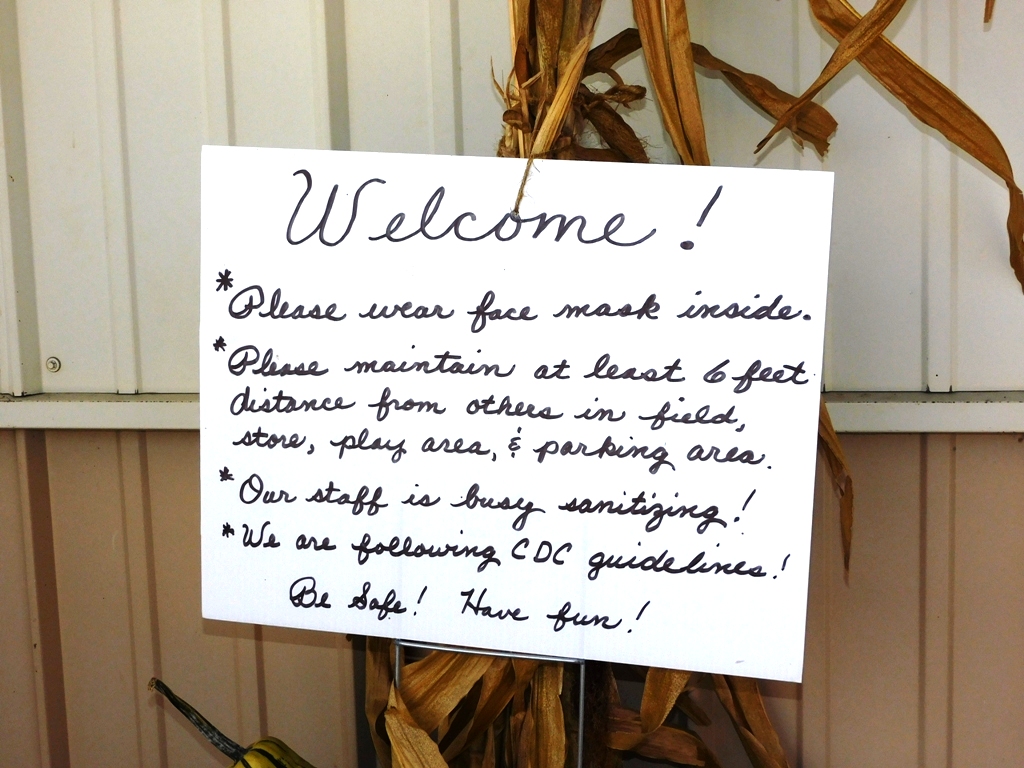 Welcome!
*Please wear face mask inside.
*Please maintain at least 6 feet
distance from others in field,
store, play area, & parking area.
*Our staff is busy sanitizing!
*We are following CDC guidelines!
Be Safe! Have fun!